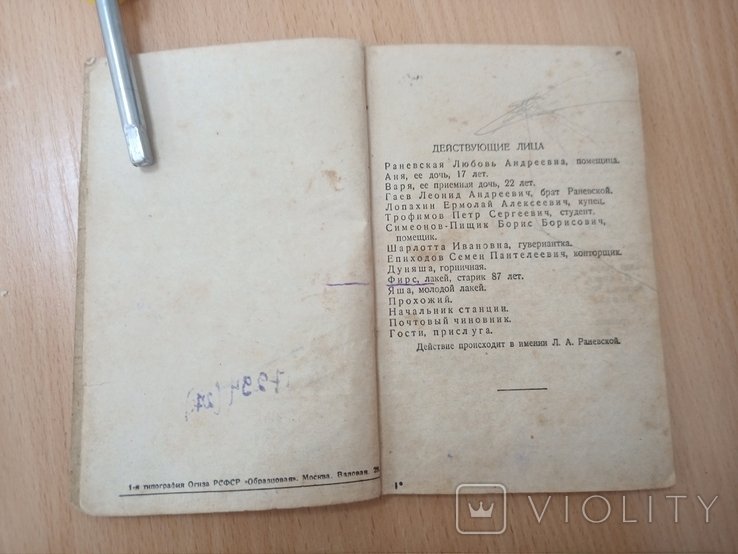 1-я типография Огиза РСФСР «Образцовая». Москва. Валовая. 28
ДЕЙСТВУЮЩИЕ ЛИЦА
Раневская Любовь Андреевна, помещица.
Аня, ее дочь, 17 лет.
Варя, ее приемная дочь, 22 лет.
Гаев Леонид Андреевич, брат Раневской.
Лопахин Ермолай Алексеевич, купец.
Трофимов Петр Сергеевич, студент.
Симеонов-Пищик Борис Борисович,
помещик.
Шарлотта Ивановна, гувернантка.
Епиходов Семен Пантелеевич, конторщик.
Дуняша, горничная.
Фирс, лакей, старик 87 лет.
Яша, молодой лакей.
Прохожий.
Начальник станции.
Почтовый чиновник.
Гости, прислуга.
Действие происходит в имении Л. А. Раневской.
1*
VIOLITY